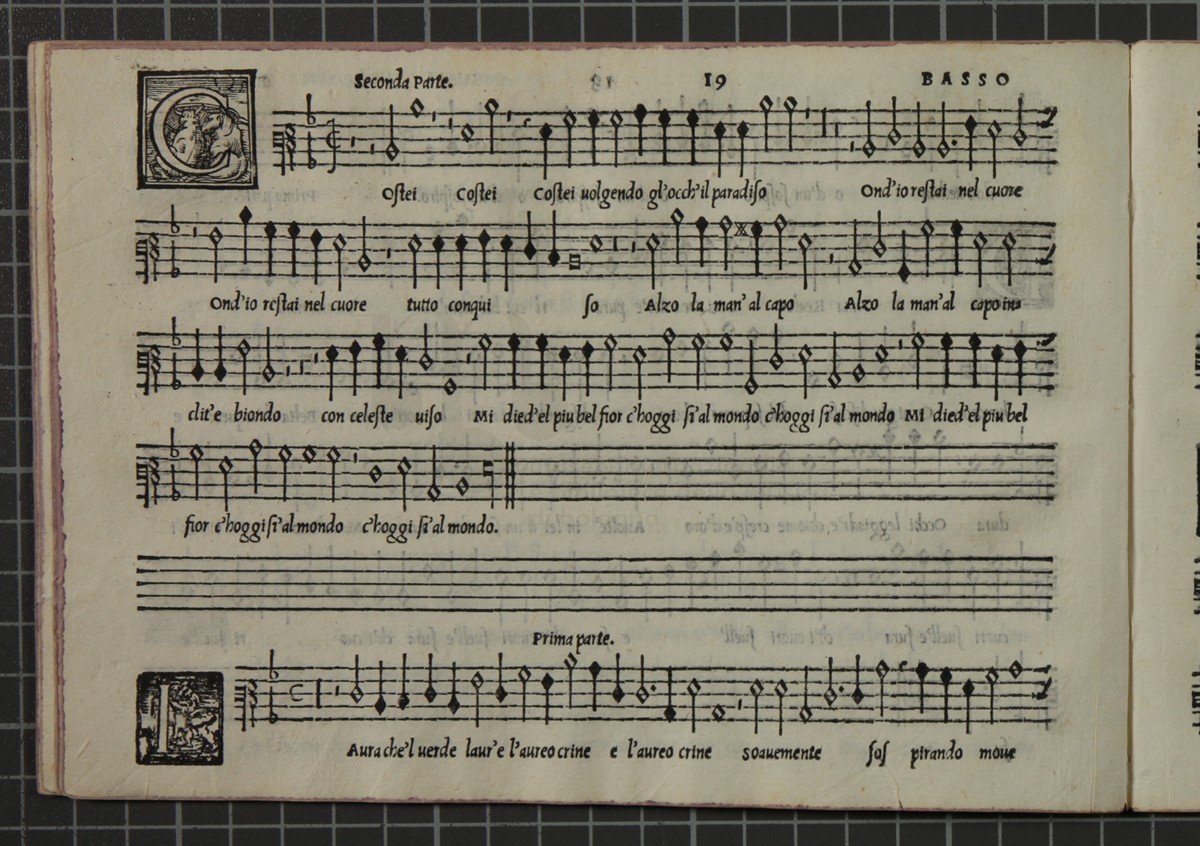 Seconda Parte. 19 BASSO
COstei Costei Costei uolgendo gl'occh'il paradiso Ond'io restai nel cuore
Ond'io restai nel cuore tutto conqui so Alzo la man' al capo Alzo la man'al capo in
clit'e biondo con celeste uiso Mi died'el piu bel fior c'hoggi si'al mondo c'hoggi si'al mondo Mi died'el piu bel
fior c'hoggi si'al mondo c'hoggi si'al mondo.
Prima parte.
LAura che'l uerde laur'e l'aureo crine e l'aureo crine soauemente sos pirando moue